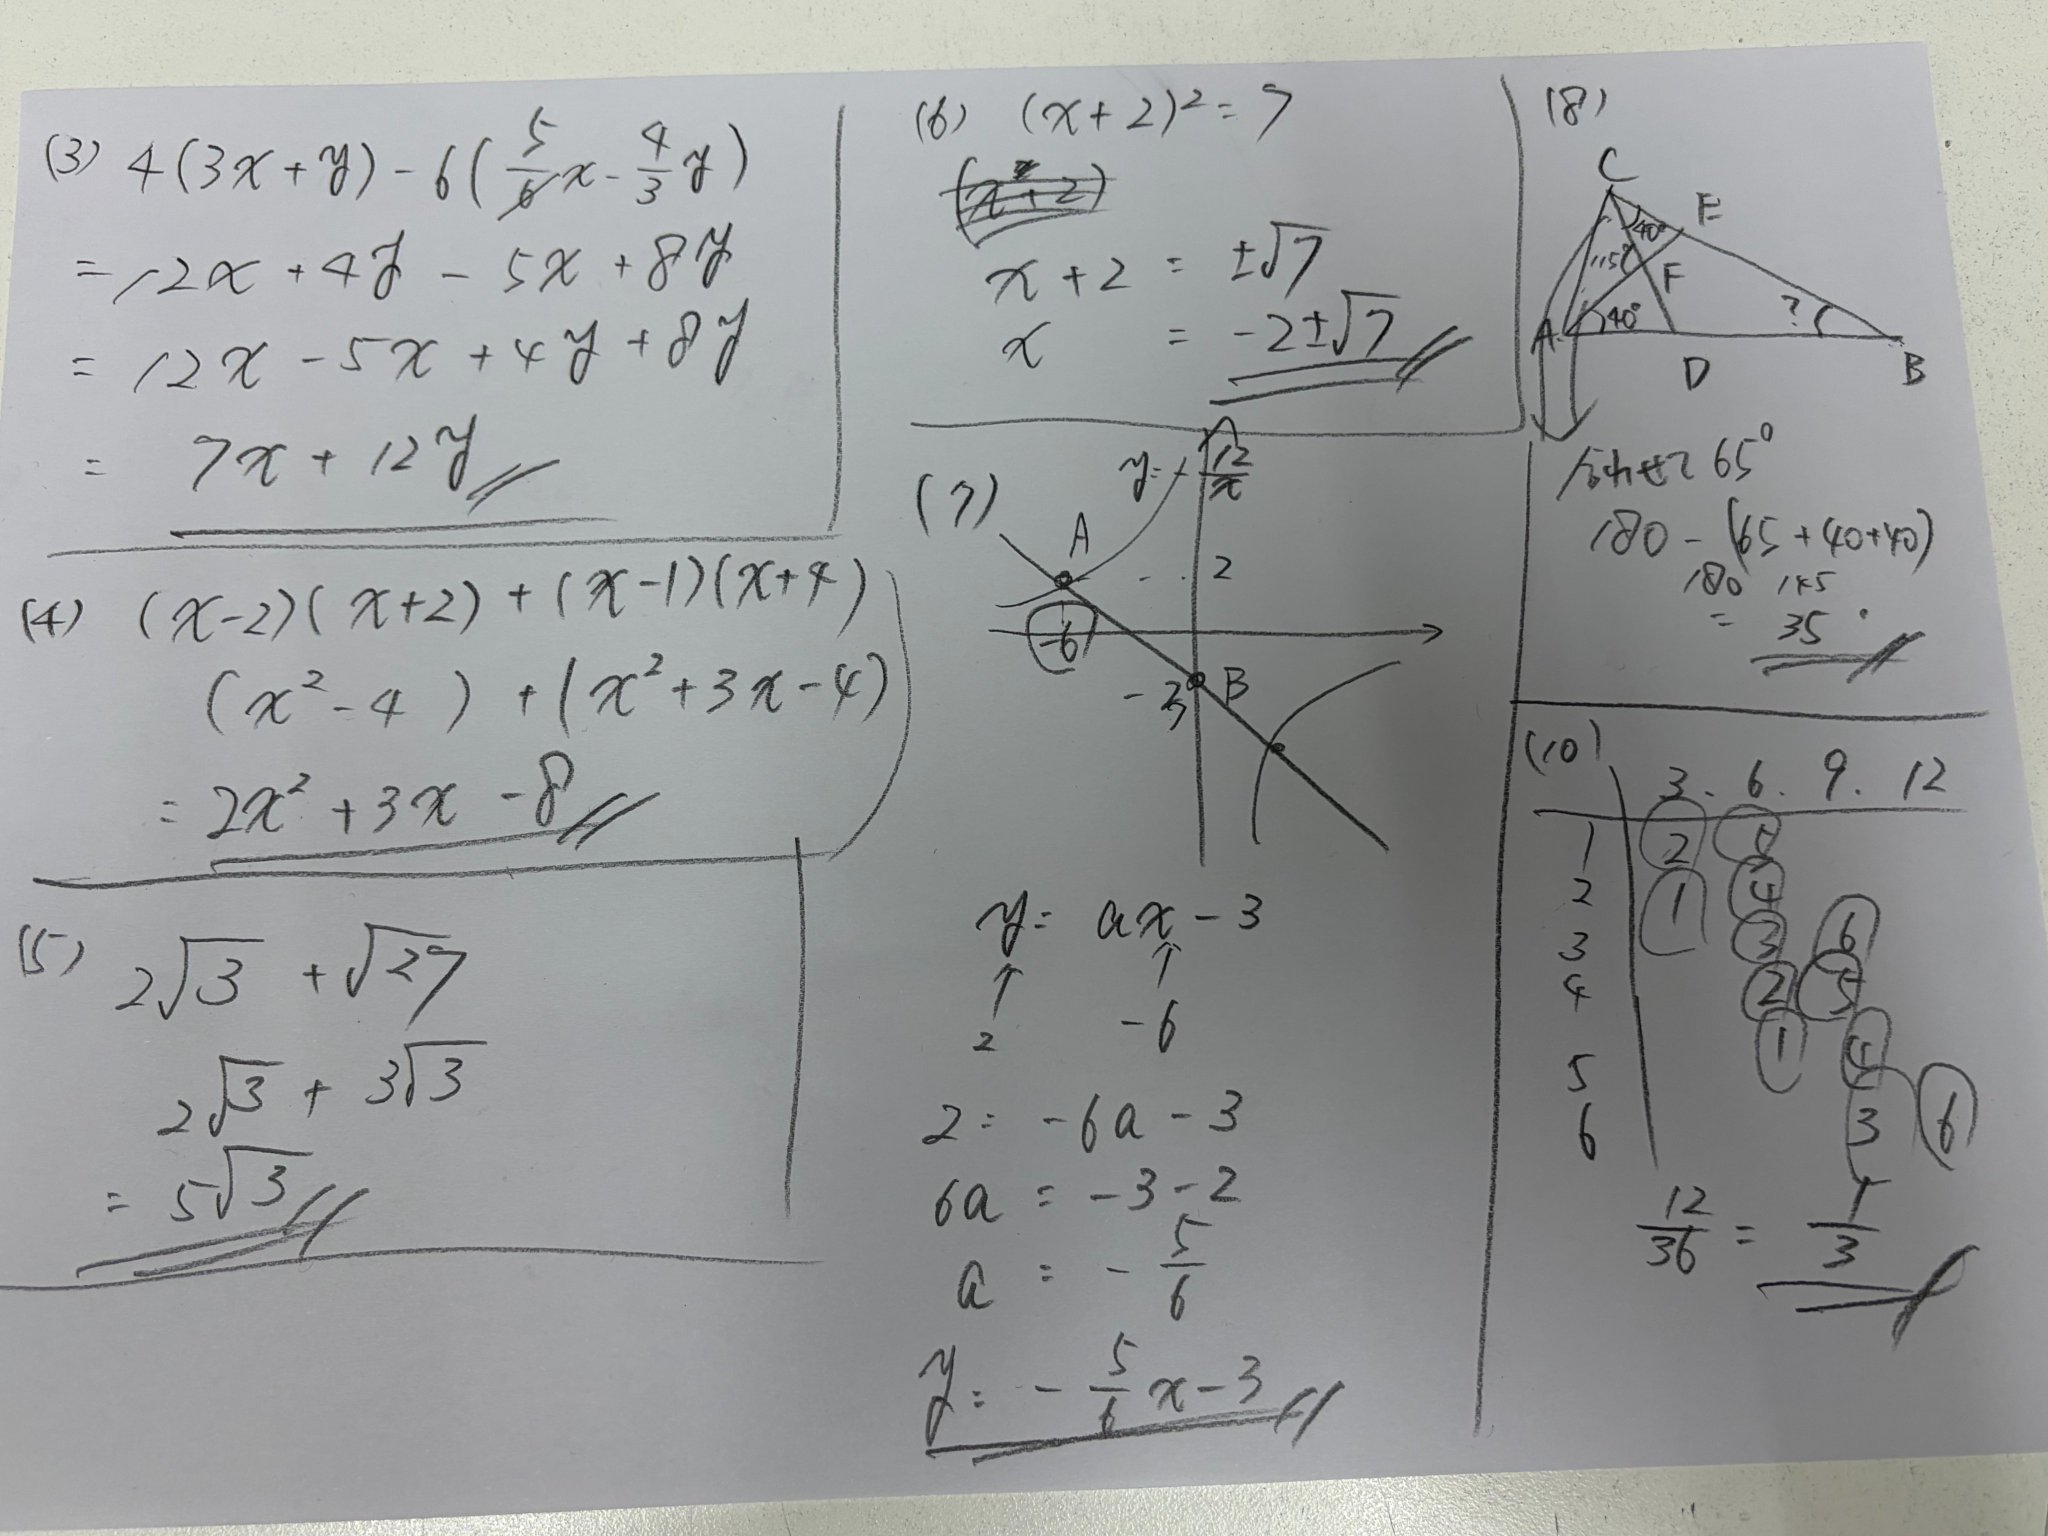 (3) 4(3x+y)-6(5/6x-4/3y)
=12x+4y-5x+8y
=12x-5x+4y+8y
= 7x+12y
(4) (x-2)(x+2)+(x-1)(x+4)
(x²-4)+(x²+3x-4)
=2x²+3x-8
(5) 2√3+√27
2√3+3√3
=5√3
(6) (x+2)²=7
x+2=±√7
x=-2±√7
(7)
y=-12/x
A
2
-6
-3
B
y=ax-3
↑ ↑
2 -6
2=-6a-3
6a=-3-2
a=-5/6
y=-5/6x-3
(8)
C
E
40°
115°
F
A 40° ?
D B
65°
180-(65+40+40)
180 145
=35°
(10)
3. 6. 9. 12
1 2 5
2 1 4
3 3 6
4 2 5
5 1 4
6 3 6
12/36=1/3